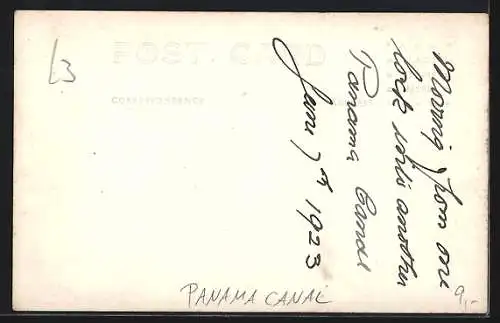 POST CARD
CORRESPONDENCE
Moving from one
lock into another
Panama Canal
June 7th 1923
L3
PANAMA CANAL
9,-